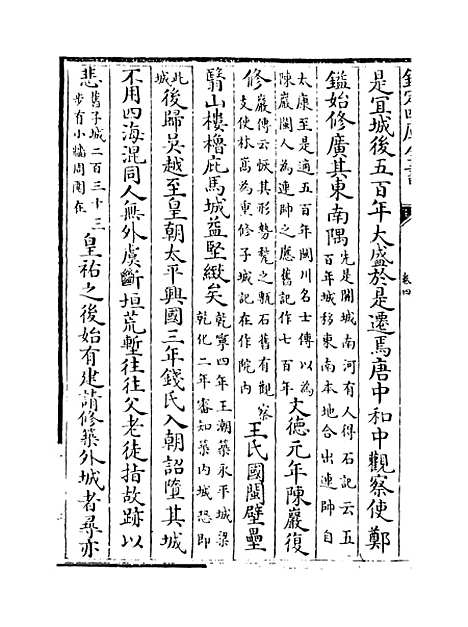 欽定四庫全書
卷四
是宜城後五百年大盛於是遷焉唐中和中觀察使鄭
鎰始修廣其東南隅
先是開城南河有人得石記云五
百年城移東南本地合出連帥自
太康至是適五百年閩川名士傳以為
陳巖閩人為連帥之應舊記作七百年
文德元年陳巖復
修
巖傳云恢其形勢甃之甎石舊有觀察
支使林蒍為重修子城記在作院内
王氏國閩壁壘
翳山樓櫓庇馬城益堅緻矣
乾寧四年王潮築永平城梁
乾化二年審知築内城恐即
此
城
後歸吳越至皇朝太平興國三年錢氏入朝詔墮其城
不用四海混同人無外虞斷垣荒塹往往父老徒指故跡以
悲
舊子城二百三十三
步有小牆周圍在
皇祐之後始有建請修築外城者尋亦